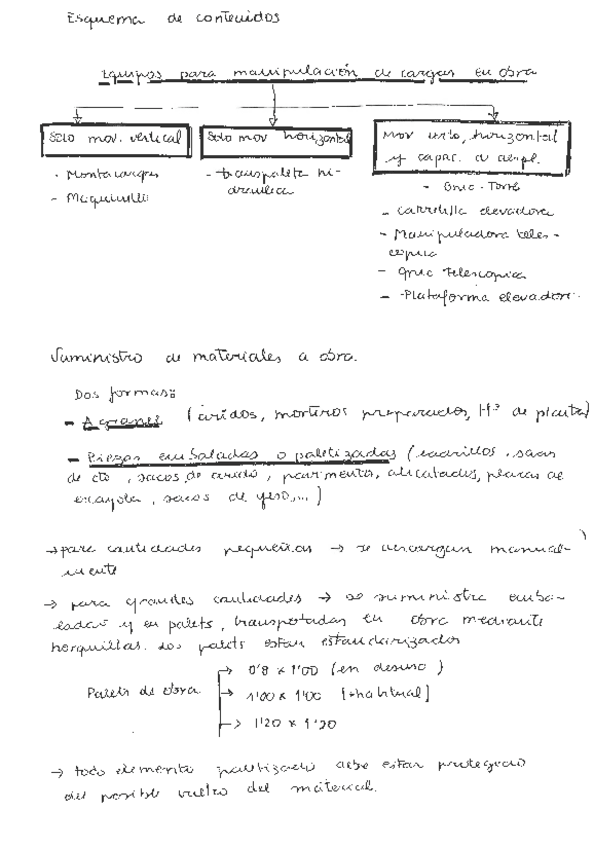 Esquema de contenidos
Equipos para manipulación de cargas en obra
Solo mov. vertical
Solo mov horizontal
Mov verto, horizontal
y capac. de despl.
- Montacargas
- Maquinillo
- transpaleta hi-
dráulica
- Grúa-Torre
- Carretilla elevadora
- Manipuladora teles-
cópica
- Grúa Telescópica
- Plataforma elevadora.
Suministro de materiales a obra.
Dos formas:
- A granel (áridos, morteros preparados, Hº de planta)
- Piezas embaladas o paletizadas (ladrillos, sacos
de cto, sacos de árido, pavimentos, alicatados, placas de
escayola, sacos de yeso,...)
→ para cantidades pequeñas → se descargan manual-
mente
→ para grandes cantidades → se suministra emba-
ladas y en palets, transportadas en obra mediante
horquillas. Los palets están estandarizados
Palets de obra
→ 0'8 x 1'00 (en desuso)
→ 1'00 x 1'00 [+habitual]
→ 1'20 x 1'20
→ todo elemento paletizado debe estar protegido
del posible vuelco del material.